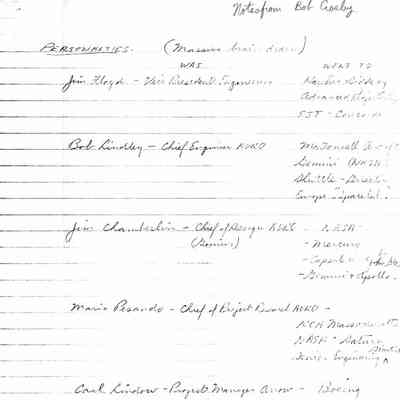 Notes from Bob Crosby
PERSONALITIES. (Massive brain drain)
WAS WENT TO
Jim Floyd - Vice President Engineering Hawker Siddeley
SST - Concorde
Bob Lindley - Chief Engineer AVRO McDonnell Aircraft
Gemini
Shuttle - Director
Europe "Spacelab"
Jim Chamberlin - Chief of Design AVRO - NASA
(Gemini) - Mercury
- Gemini & Apollo.
Mario Pesando - Chief of Project Research AVRO -
RCA Massachusetts
NASA - Saturn
Engineering
Carl Lindow - Projects Manager Arrow - Boeing